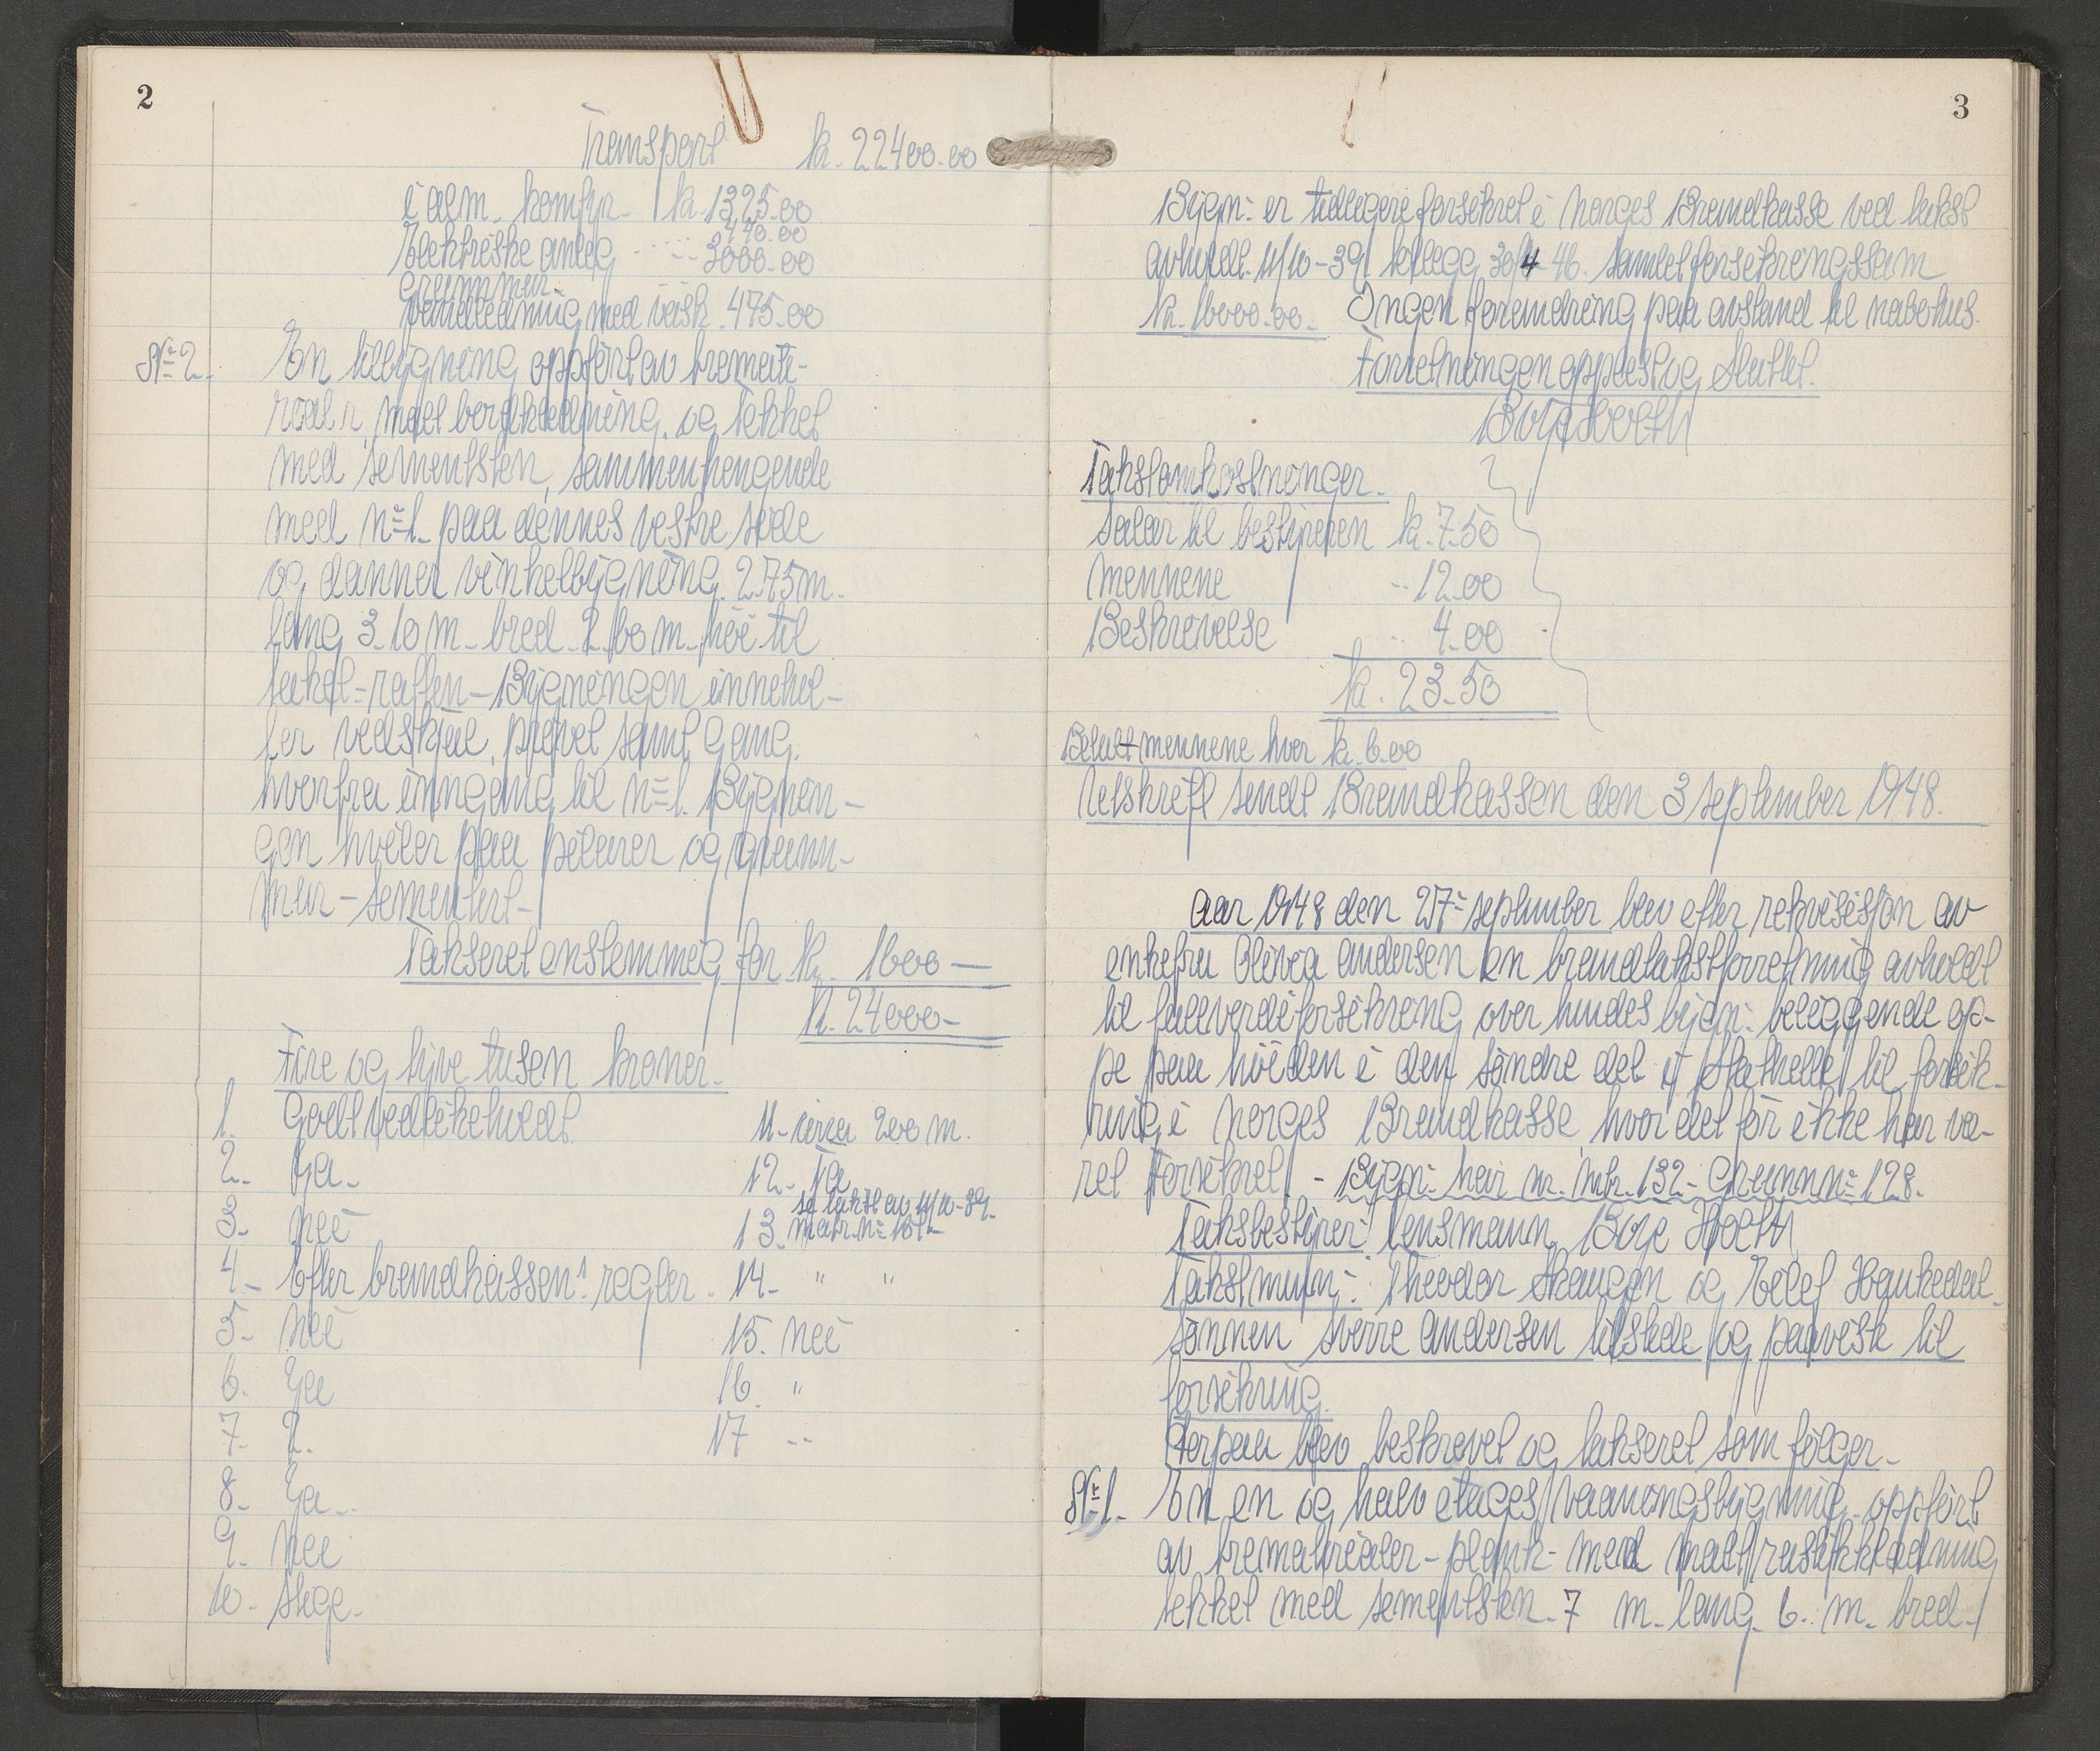 2
Transport kr. 22400.00
i alm. komfyr kr. 1325.00
440.00
Elektriske anleg - - 3000.00
Grunnmur
Vandledning med vask. 475.00
No 2. En tilbygning oppfört av tremate-
rialr, malt bordkledning og tekket
med sementsten, sammenhengende
med no 1. paa dennes vestre side
og danner vinkelbygning. 2.75 m.
lang 3.10 m. bred 2.60 m. höi til
takraften - Bygningen innehol-
der vedskjul, privet samt gang.
hvorfra inngang til no 1. Bygnin-
gen hviler paa pilarer og grunn-
mur - sementert -
Takseret enstemmig for kr. 1600 —
kr. 24000 -
Fire og tyve tusen kroner.
1. Godt vedlikeholdt. 11. circa 200 m.
2. Ja. 12. Ja
3. Nei 13. se takst av 11/10-39. matr. no
4. Efter brandkassens regler. 14. " "
5. Nei 15. Nei
6. Ja 16. "
7. 2. 17 --
8. Ja..
9. Nei
10. Stege.
3
Bygn: er tidligere forsikret i Norges Brandkasse ved takst
avholdt 11/10-39 tillegg 30/4-46. samlet forsikringssum
kr. 16000.00. Ingen forandring paa avstand til nabohus.
Forretningen opplest og sluttet.
Borge Hoeth
Takstomkostninger.
Salar til bestireren kr. 7.50
Mennene -- 12.00
Beskrivelse .. 4.00
kr. 23.50
Betalt mennene hver kr. 6.00
Utskrift sendt Brandkassen den 3 september 1948.
Aar 1948 den 27- september blev efter rekvisisjon av
enkefru Olivia Andersen en brandtakstforretning avholdt
til fullverdiforsikring over hendes bygn: beliggende op-
pe paa höiden i den söndre del af Stathelle til forsik-
ring i Norges Brandkasse, hvor det för ikke har væ-
ret forsikret. - Bygn: har br. mtr. 132 - Grunnno 128.
Takstbestirer: Lensmann Borge Hoeth
Takstmenn: Theodor Skaugen og Eilef Haukedal.
Sönnen Sverre Andersen tilstede og paaviste til
forsikring.
Derpaa blev beskrevet og takseret som fölger.
No 1. En en og halv etages vaaningsbygning oppfört
av trematrialer - plank - med malt rustikkledning
tekket med sementsten. 7 m. lang 6. m. bred.